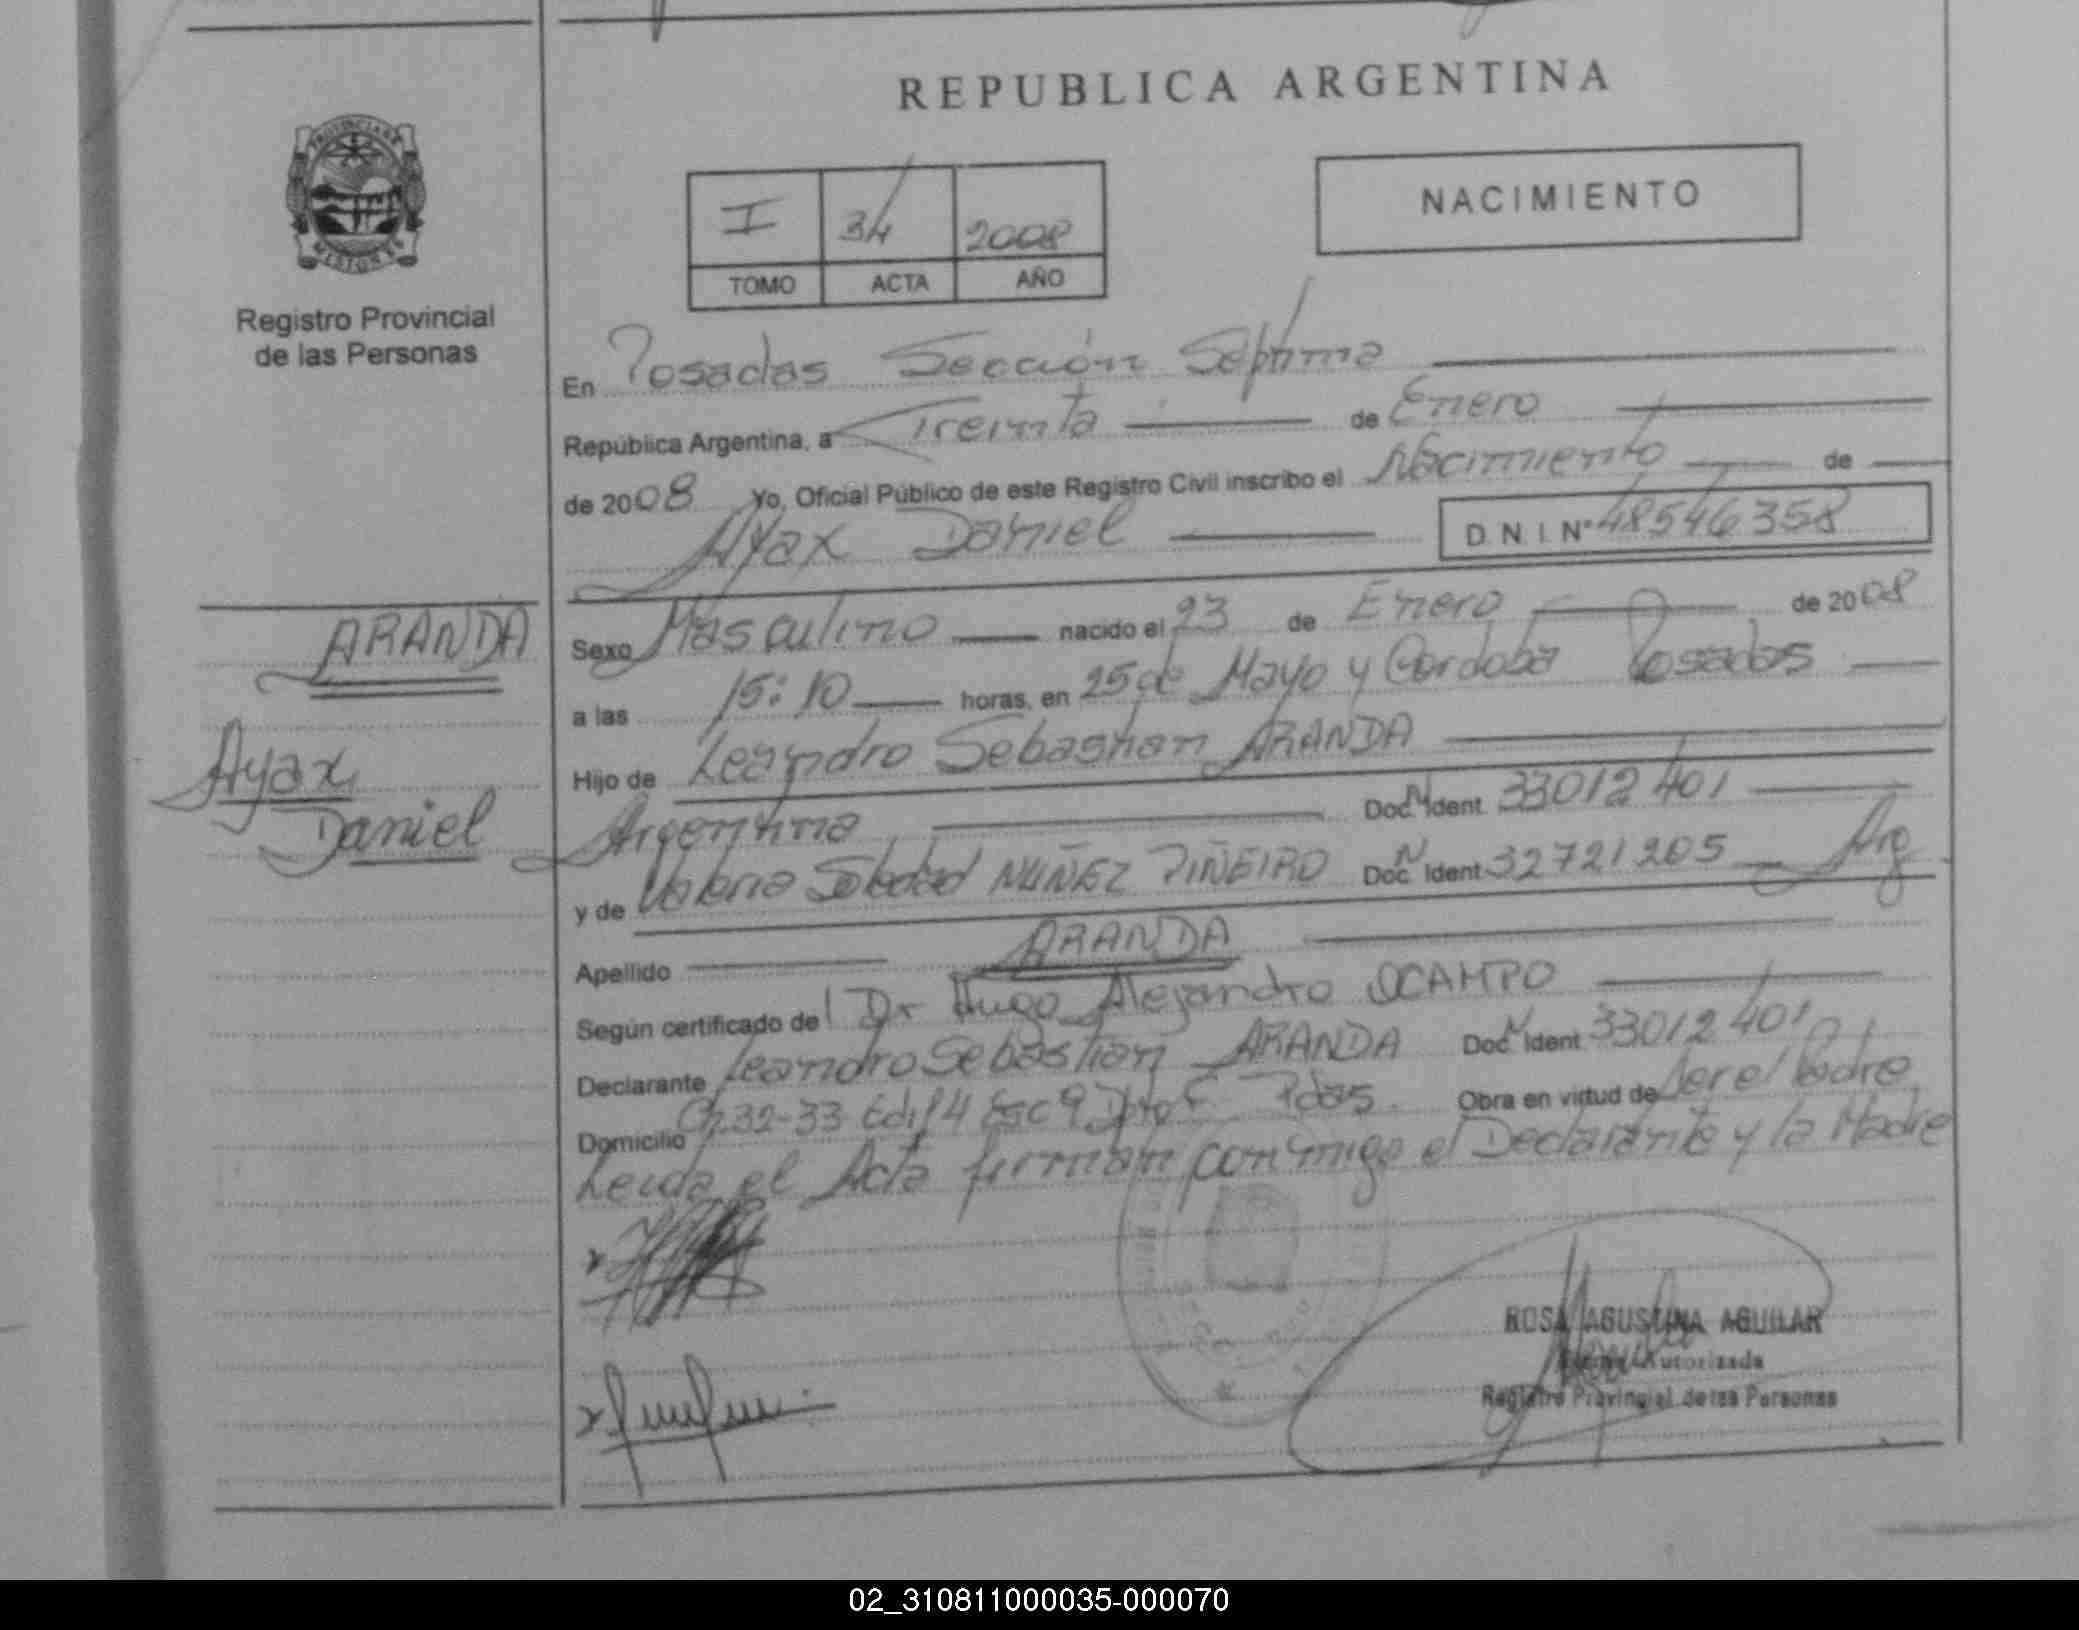 REPUBLICA ARGENTINA
PROVINCIA DE
MISIONES
Registro Provincial
de las Personas
I 34 2008
TOMO ACTA AÑO
NACIMIENTO
En Posadas Sección Séptima
República Argentina, a Treinta de Enero
de 2008 Yo, Oficial Público de este Registro Civil inscribo el Nacimiento de
Ayax Daniel D.N.I. Nº 48546358
ARANDA
Ayax
Daniel
Sexo Masculino nacido el 23 de Enero de 2008
a las 15:10 horas, en 25 de Mayo y Cordoba Posadas
Hijo de Leandro Sebastian ARANDA
Argentina Doc N Ident. 33012401
y de Valeria Soledad NUÑEZ PIÑEIRO Doc N Ident 32721205 Arg
Apellido ARANDA
Según certificado del Dr Hugo Alejandro OCAMPO
Declarante Leandro Sebastian ARANDA Doc N Ident 33012401
Domicilio Ch 32-33 Edif 4 Esc 9 Dpto Pdas. Obra en virtud de ser el Padre
Leida el Acta firman conmigo el Declarante y la Madre
ROSA AGUSTINA AGUILAR
Autorizada
Registro Provincial de las Personas
02_310811000035-000070